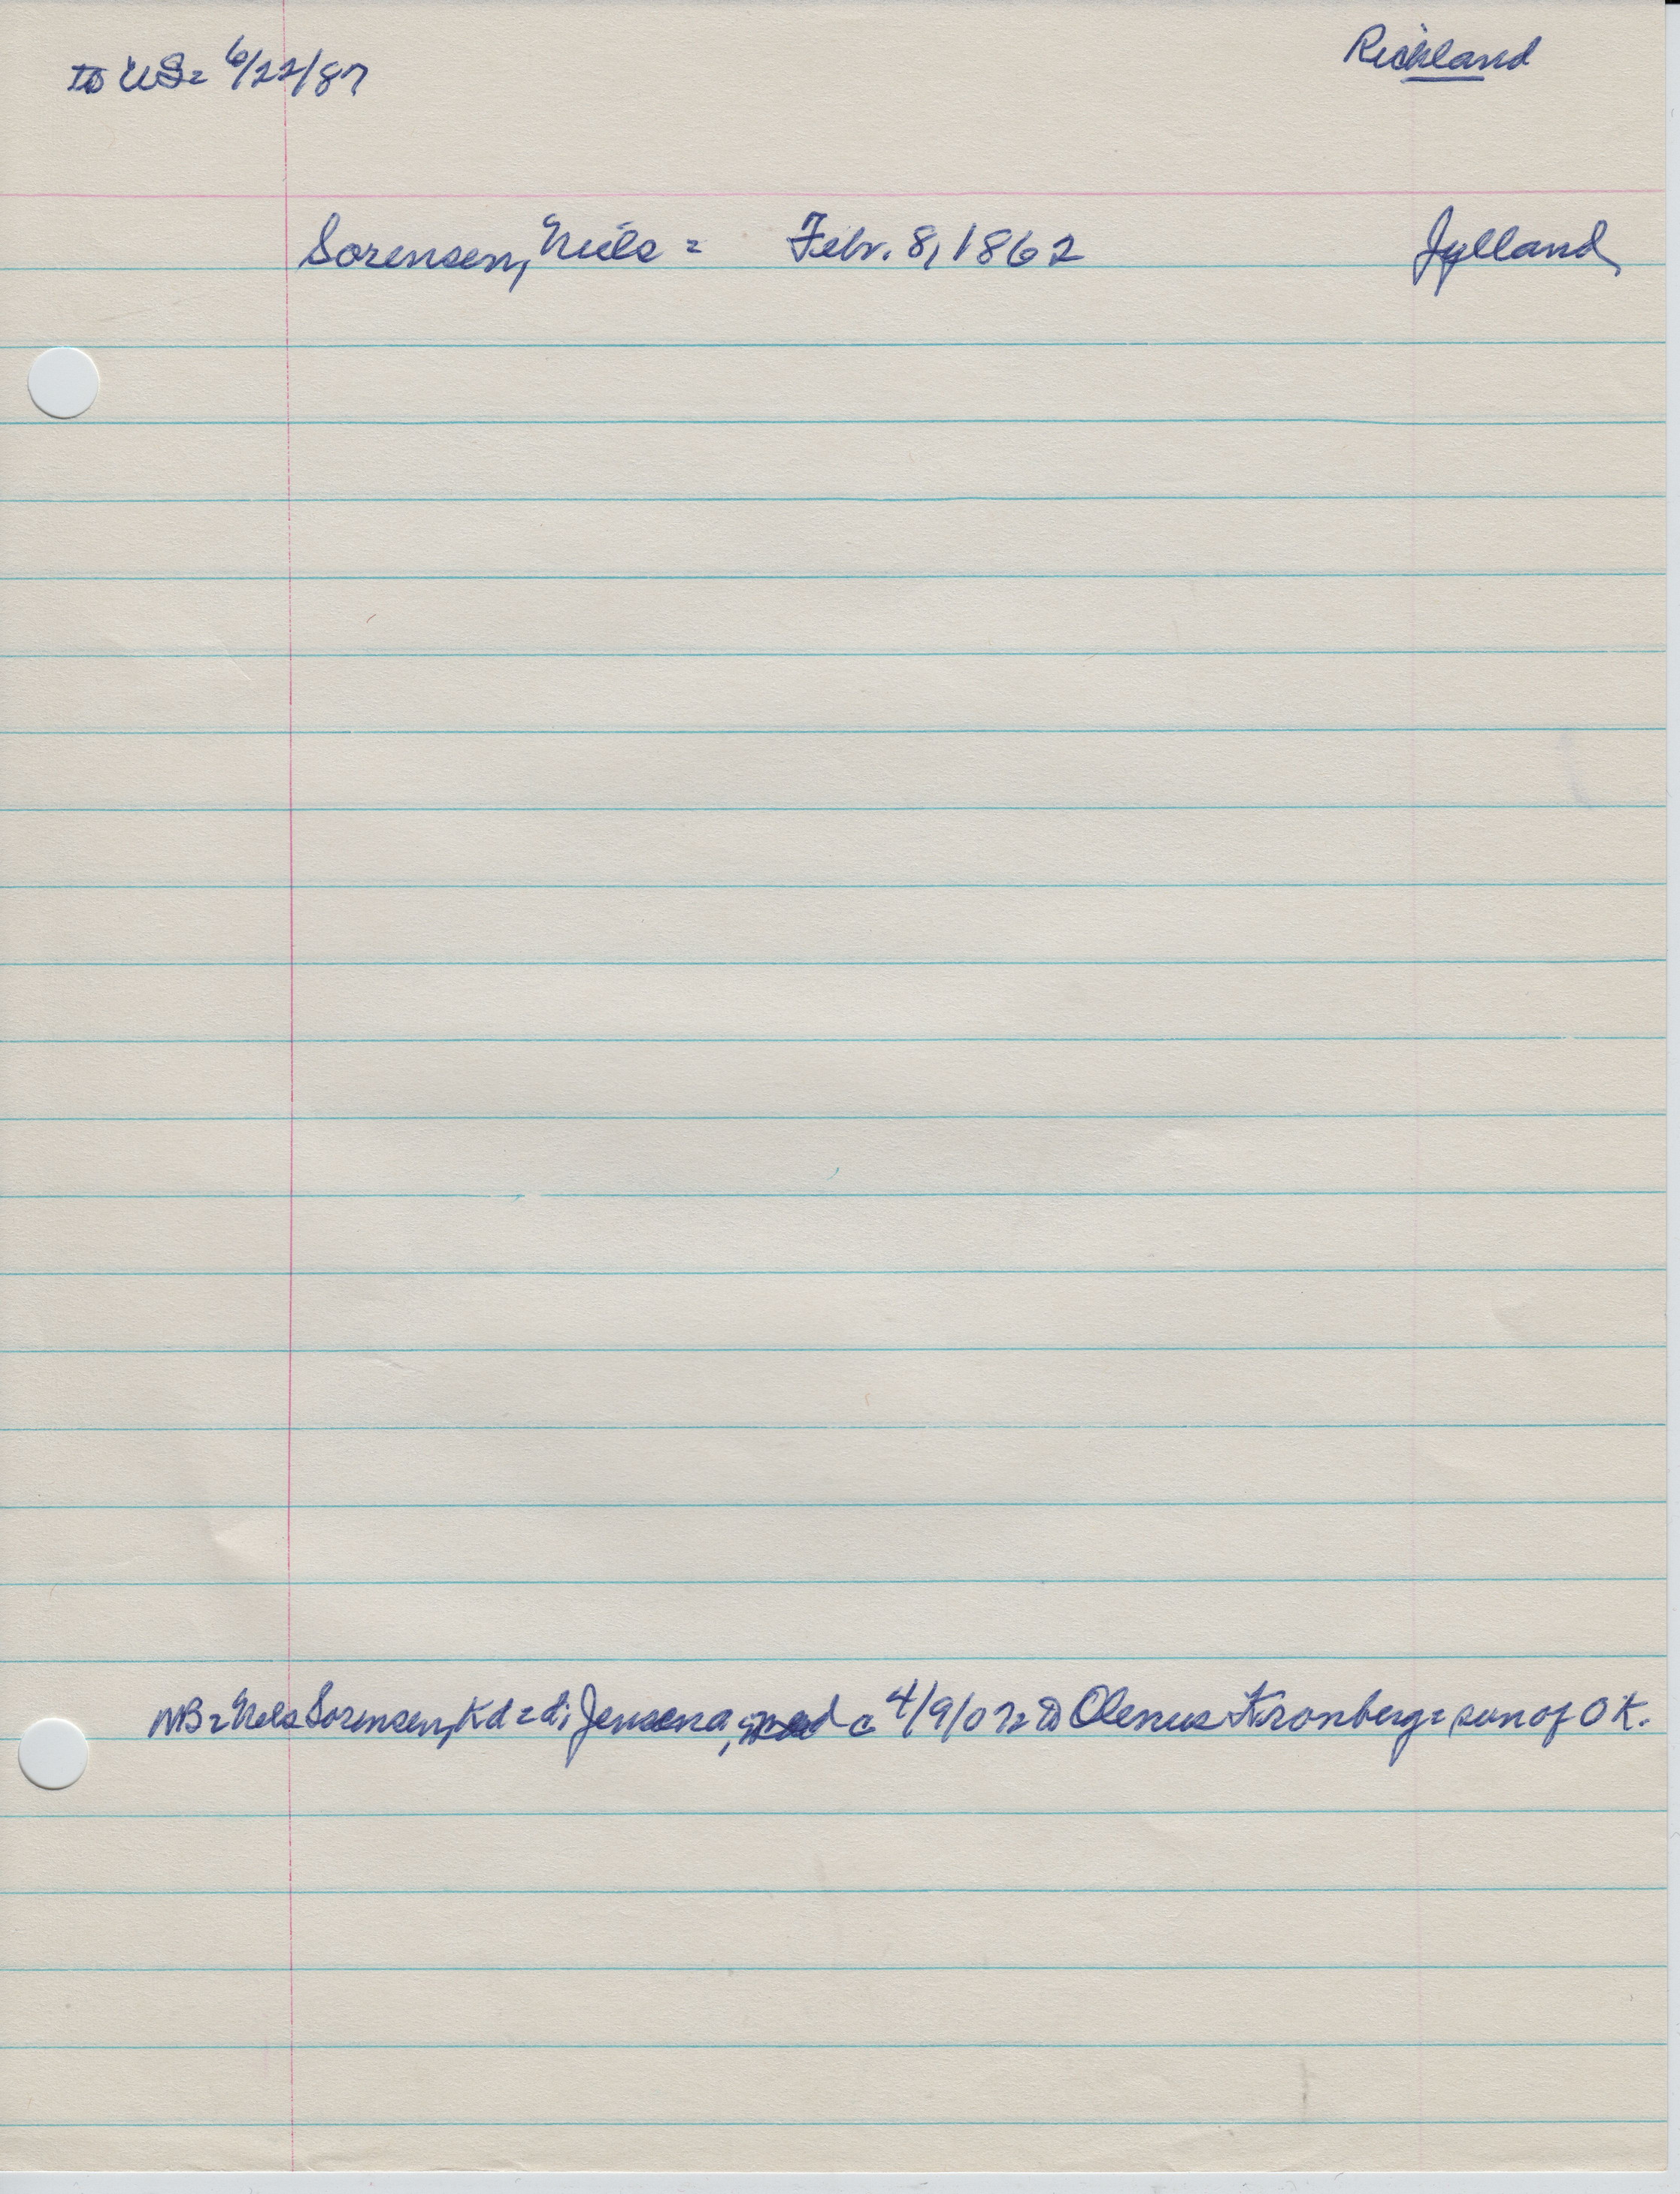 to US = 6/22/87
Richland
Sorensen, Niels = Febr. 8, 1862 Jylland
NB = Niels Sorensen, Kd = d; Jensena, c 4/9/07 = to Olenus Kronberg = son of O K.